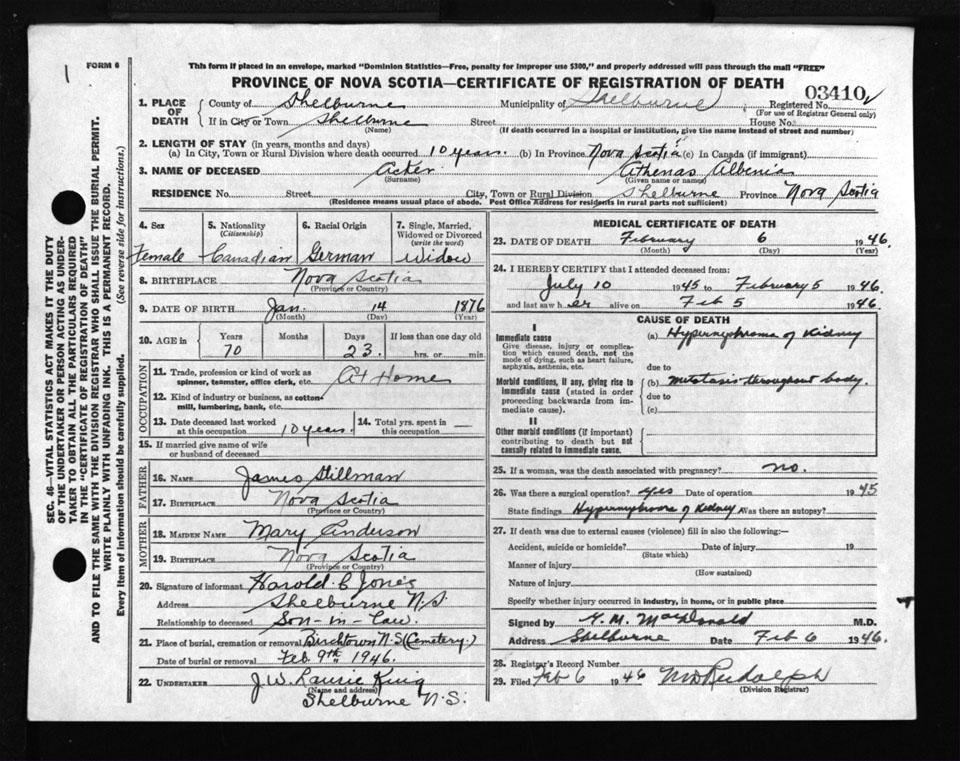 FORM 6
1
This form if placed in an envelope, marked "Dominion Statistics—Free, penalty for improper use $300," and properly addressed will pass through the mail "FREE"
PROVINCE OF NOVA SCOTIA—CERTIFICATE OF REGISTRATION OF DEATH
03410
1. PLACE OF DEATH County of Shelburne Municipality of Shelburne Registered No.
(For use of Registrar General only)
If in City or Town Shelburne Street House No.
(Name) (If death occurred in a hospital or institution, give the name instead of street and number)
2. LENGTH OF STAY (in years, months and days)
(a) In City, Town or Rural Division where death occurred 10 years. (b) In Province Nova Scotia (c) In Canada (if immigrant)
3. NAME OF DECEASED Acker Athenas Albenia
(Surname) (Given name or names)
RESIDENCE No. Street City, Town or Rural Division Shelburne Province Nova Scotia
(Residence means usual place of abode. Post Office Address for residents in rural parts not sufficient)
4. Sex 5. Nationality (Citizenship) 6. Racial Origin 7. Single, Married, Widowed or Divorced (write the word)
Female Canadian German Widow
8. BIRTHPLACE Nova Scotia
(Province or Country)
9. DATE OF BIRTH Jan. 14 1876
(Month) (Day) (Year)
10. AGE in Years Months Days If less than one day old
70 23. hrs. or min.
OCCUPATION
11. Trade, profession or kind of work as spinner, teamster, office clerk, etc. At Home
12. Kind of industry or business, as cotton-mill, lumbering, bank, etc.
13. Date deceased last worked at this occupation 10 years. 14. Total yrs. spent in this occupation —
15. If married give name of wife or husband of deceased
FATHER
16. NAME James Stillman
17. BIRTHPLACE Nova Scotia
(Province or Country)
MOTHER
18. MAIDEN NAME Mary Anderson
19. BIRTHPLACE Nova Scotia
(Province or Country)
20. Signature of informant Harold C Jones
Address Shelburne N.S.
Relationship to deceased Son-in-law.
21. Place of burial, cremation or removal Birchtown N.S (Cemetery.)
Date of burial or removal Feb. 9th 1946.
22. UNDERTAKER J.W. Laurie King
(Name and address)
Shelburne N.S.
MEDICAL CERTIFICATE OF DEATH
23. DATE OF DEATH February 6 1946.
(Month) (Day) (Year)
24. I HEREBY CERTIFY that I attended deceased from:
July 10 1945 to February 5 1946.
and last saw her alive on Feb 5 1946.
CAUSE OF DEATH
I
Immediate cause (a) Hypernephroma of Kidney
Give disease, injury or complication which caused death, not the mode of dying, such as heart failure, asphyxia, asthenia, etc.
due to
Morbid conditions, if any, giving rise to immediate cause (stated in order proceeding backwards from immediate cause).
(b) metatasis throughout body.
due to
(c)
II
Other morbid conditions (if important) contributing to death but not causally related to immediate cause.
25. If a woman, was the death associated with pregnancy? no.
26. Was there a surgical operation? yes Date of operation 1945
State findings Hypernephroma of Kidney Was there an autopsy?
27. If death was due to external causes (violence) fill in also the following:—
Accident, suicide or homicide? Date of injury 19
(State which)
Manner of injury
(How sustained)
Nature of injury
Specify whether injury occurred in industry, in home, or in public place
Signed by MacDonald M.D.
Address Shelburne Date Feb 6 1946.
28. Registrar's Record Number
29. Filed Feb 6 1946 Rudolph
(Division Registrar)
SEC. 46—VITAL STATISTICS ACT MAKES IT THE DUTY
OF THE UNDERTAKER OR PERSON ACTING AS UNDER-
TAKER TO OBTAIN ALL THE PARTICULARS REQUIRED
IN THE "CERTIFICATE OF REGISTRATION OF DEATH"
AND TO FILE THE SAME WITH THE DIVISION REGISTRAR WHO SHALL ISSUE THE BURIAL PERMIT.
WRITE PLAINLY WITH UNFADING INK. THIS IS A PERMANENT RECORD.
Every item of information should be carefully supplied. (See reverse side for instructions.)